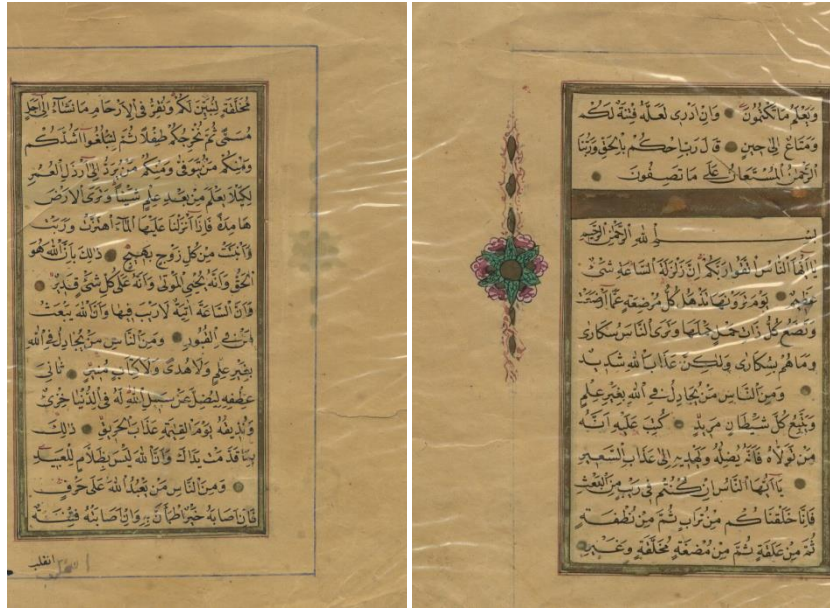 وَيَعْلَمُ مَا تَكْتُمُونَ وَاِنْ اَدْرِى لَعَلَّهُ فِتْنَةٌ لَكُمْ
وَمَتَاعٌ اِلٰى حِينٍ قَالَ رَبِّ احْكُمْ بِالْحَقِّ وَرَبُّنَا
الرَّحْمٰنُ الْمُسْتَعَانُ عَلٰى مَا تَصِفُونَ
بِسْمِ اللهِ الرَّحْمٰنِ الرَّحِيمِ
يَا اَيُّهَا النَّاسُ اتَّقُوا رَبَّكُمْ اِنَّ زَلْزَلَةَ السَّاعَةِ شَىْءٌ
عَظِيمٌ يَوْمَ تَرَوْنَهَا تَذْهَلُ كُلُّ مُرْضِعَةٍ عَمَّا اَرْضَعَتْ
وَتَضَعُ كُلُّ ذَاتِ حَمْلٍ حَمْلَهَا وَتَرَى النَّاسَ سُكَارٰى
وَمَا هُمْ بِسُكَارٰى وَلٰكِنَّ عَذَابَ اللهِ شَدِيدٌ
وَمِنَ النَّاسِ مَنْ يُجَادِلُ فِى اللهِ بِغَيْرِ عِلْمٍ
وَيَتَّبِعُ كُلَّ شَيْطَانٍ مَرِيدٍ كُتِبَ عَلَيْهِ اَنَّهُ
مَنْ تَوَلَّاهُ فَاَنَّهُ يُضِلُّهُ وَيَهْدِيهِ اِلٰى عَذَابِ السَّعِيرِ
يَا اَيُّهَا النَّاسُ اِنْ كُنْتُمْ فِى رَيْبٍ مِنَ الْبَعْثِ
فَاِنَّا خَلَقْنَاكُمْ مِنْ تُرَابٍ ثُمَّ مِنْ نُطْفَةٍ
ثُمَّ مِنْ عَلَقَةٍ ثُمَّ مِنْ مُضْغَةٍ مُخَلَّقَةٍ وَغَيْرِ
مُخَلَّقَةٍ لِنُبَيِّنَ لَكُمْ وَنُقِرُّ فِى الْاَرْحَامِ مَا نَشَاءُ اِلٰى اَجَلٍ
مُسَمًّى ثُمَّ نُخْرِجُكُمْ طِفْلًا ثُمَّ لِتَبْلُغُوا اَشُدَّكُمْ
وَمِنْكُمْ مَنْ يُتَوَفّٰى وَمِنْكُمْ مَنْ يُرَدُّ اِلٰى اَرْذَلِ الْعُمُرِ
لِكَيْلَا يَعْلَمَ مِنْ بَعْدِ عِلْمٍ شَيْئًا وَتَرَى الْاَرْضَ
هَامِدَةً فَاِذَا اَنْزَلْنَا عَلَيْهَا الْمَاءَ اهْتَزَّتْ وَرَبَتْ
وَاَنْبَتَتْ مِنْ كُلِّ زَوْجٍ بَهِيجٍ ذٰلِكَ بِاَنَّ اللهَ هُوَ
الْحَقُّ وَاَنَّهُ يُحْيِى الْمَوْتٰى وَاَنَّهُ عَلٰى كُلِّ شَىْءٍ قَدِيرٌ
وَاَنَّ السَّاعَةَ اٰتِيَةٌ لَا رَيْبَ فِيهَا وَاَنَّ اللهَ يَبْعَثُ
مَنْ فِى الْقُبُورِ وَمِنَ النَّاسِ مَنْ يُجَادِلُ فِى اللهِ
بِغَيْرِ عِلْمٍ وَلَا هُدًى وَلَا كِتَابٍ مُنِيرٍ ثَانِىَ
عِطْفِهِ لِيُضِلَّ عَنْ سَبِيلِ اللهِ لَهُ فِى الدُّنْيَا خِزْىٌ
وَنُذِيقُهُ يَوْمَ الْقِيٰمَةِ عَذَابَ الْحَرِيقِ ذٰلِكَ
بِمَا قَدَّمَتْ يَدَاكَ وَاَنَّ اللهَ لَيْسَ بِظَلَّامٍ لِلْعَبِيدِ
وَمِنَ النَّاسِ مَنْ يَعْبُدُ اللهَ عَلٰى حَرْفٍ
فَاِنْ اَصَابَهُ خَيْرٌ اطْمَاَنَّ بِهِ وَاِنْ اَصَابَتْهُ فِتْنَةٌ
انقلب